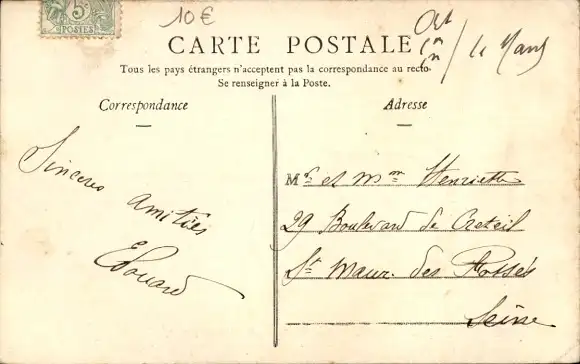 5c
POSTES
10€
CARTE POSTALE
Tous les pays étrangers n'acceptent pas la correspondance au recto.
Se renseigner à la Poste.
Correspondance
Adresse
Le Mans
Sincères
amitiés
Edouard
Mr et Mme Henriette
29 Boulevard de Creteil
St Maur des Fossés
Seine